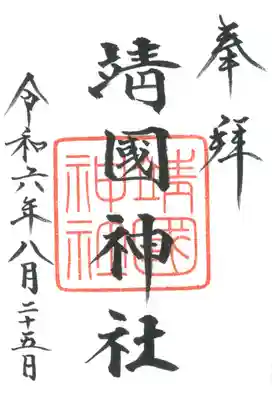 奉拝
靖國神社
靖國神社
令和六年八月二十五日